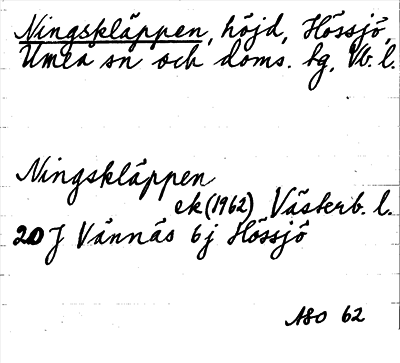 Ningskläppen, höjd, Hössjö,
Umeå sn och doms. tg, Vb. l.
Ningskläppen
ek (1962) Västerb. l.
20 J Vännäs 6j Hössjö
ASO 62